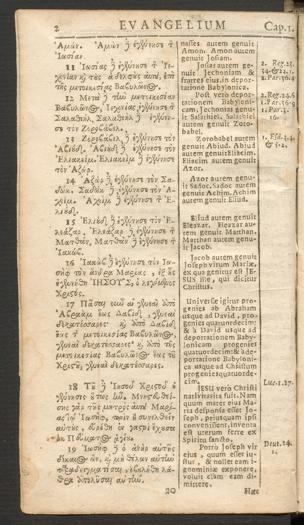 2 EVANGELIUM Cap.1.
Ἀμών. Ἀμὼν ἢ ἐγέννησε τ̀
Ἰωσίαν.
11 Ἰωσίας ἢ ἐγέννησε τ̀ Ἰε-
τῆς μετοικεσίας Βαβυλῶνος.
12 Μετὰ ἢ τὴν μετοικεσίαν
Βαβυλῶνος, Ἰεχονίας ἐγέννησε τ̀
Σαλαθιήλ. Σαλαθιὴλ ἢ ἐγέννη-
σε τ̀ Ζοροβάβελ.
13 Ζοροβάβελ ἢ ἐγέννησε τὸν
Ἀβιούδ. Ἀβιοὺδ ἢ ἐγέννησε τὸν
Ἐλιακείμ. Ἐλιακεὶμ ἢ ἐγέννησε
τὸν Ἀζώρ.
14 Ἀζὼρ ἢ ἐγέννησε τὸν Σα-
δώκ. Σαδὼκ ἢ ἐγέννησε τὸν Ἀ-
χείμ. Ἀχεὶμ ἢ ἐγέννησε τὸν Ἐ-
λιούδ.
15 Ἐλιοὺδ ἢ ἐγέννησε τὸν Ἐ-
λεάζαρ. Ἐλεάζαρ ἢ ἐγέννησε τ̀
Ματθάν. Ματθὰν ἢ ἐγέννησε τ̀
Ἰακώβ.
16 Ἰακὼβ ἢ ἐγέννησε τὸν Ἰω-
σὴφ τὸν ἄνδρα Μαρίας, ἐξ ἧς
ἐγεννήθη ἸΗΣΟΥΣ, ὁ λεγόμενος
Χριστός.
17 Πᾶσαι οὖν αἱ γενεαὶ ἀπὸ
Ἀβραὰμ ἕως Δαβὶδ, γενεαὶ
δεκατέσσαρες· κ̀ ἀπὸ Δαβὶδ
ἕως τ̀ μετοικεσίας Βαβυλῶνος,
γενεαὶ δεκατέσσαρες· κ̀ ἀπὸ τῆς
μετοικεσίας Βαβυλῶνος ἕως τοῦ
Χριστοῦ, γενεαὶ δεκατέσσαρες.
18 Τοῦ ἢ Ἰησοῦ Χριστοῦ ἡ
γέννησις οὕτως ἦν. Μνηστευθεί-
σης γὰρ τῆς μητρὸς αὐτοῦ Μαρί-
ας τῷ Ἰωσὴφ, πρὶν ἢ συνελθεῖν
αὐτοὺς, εὑρέθη ἐν γαστρὶ ἔχουσα
ἐκ Πνεύματος ἁγίου.
19 Ἰωσὴφ ἢ ὁ ἀνὴρ αὐτῆς
δίκαιος ὢν, κ̀ μὴ θέλων αὐτὴν
παραδειγματίσαι, ἐβουλήθη λά-
θρα ἀπολῦσαι αὐτήν.
20
nasses autem genuit
Amon. Amon autem
genuit Josiam.
Josias autem ge-
nuit Jechoniam &
fratres ejus, in depor-
tatione Babylonica.
Post vero deporta-
tionem Babyloni-
cam, Jechonias genu-
it Salathiel. Salathiel
autem genuit Zoro-
babel.
Zorobabel autem
genuit Abiud. Abiud
autem genuit Eliacim.
Eliacim autem genuit
Azor.
Azor autem genu-
it Sadoc. Sadoc autem
genuit Achim. Achim
autem genuit Eliud.
Eliud autem genuit
Eleazar. Eleazar au-
tem genuit Matthan.
Matthan autem genu-
it Jacob.
Jacob autem genuit
Joseph virum Mariæ,
ex qua genitus est JE-
SUS ille, qui dicitur
Christus.
Universæ igitur pro-
genies ab Abraham
usque ad David, pro-
genies quatuordecim:
& à David usque ad
deportationem Baby-
lonicam progenies
quatuordecim: & à de-
portatione Babyloni-
ca usque ad Christum
progenies quatuorde-
cim.
JESU verò Christi
nativitas ita fuit. Nam
quum mater ejus Ma-
ria desponsa esset Jo-
seph, priusquam ipsi
convenissent, inventa
est uterum ferre ex
Spiritu sancto.
Porrò Joseph vir
ejus, quum esset ju-
stus, & nollet eam i-
gnominiæ exponere,
voluit clam eam di-
mittere.
Hæc
Luc.1.27.
Deut.24.
1.